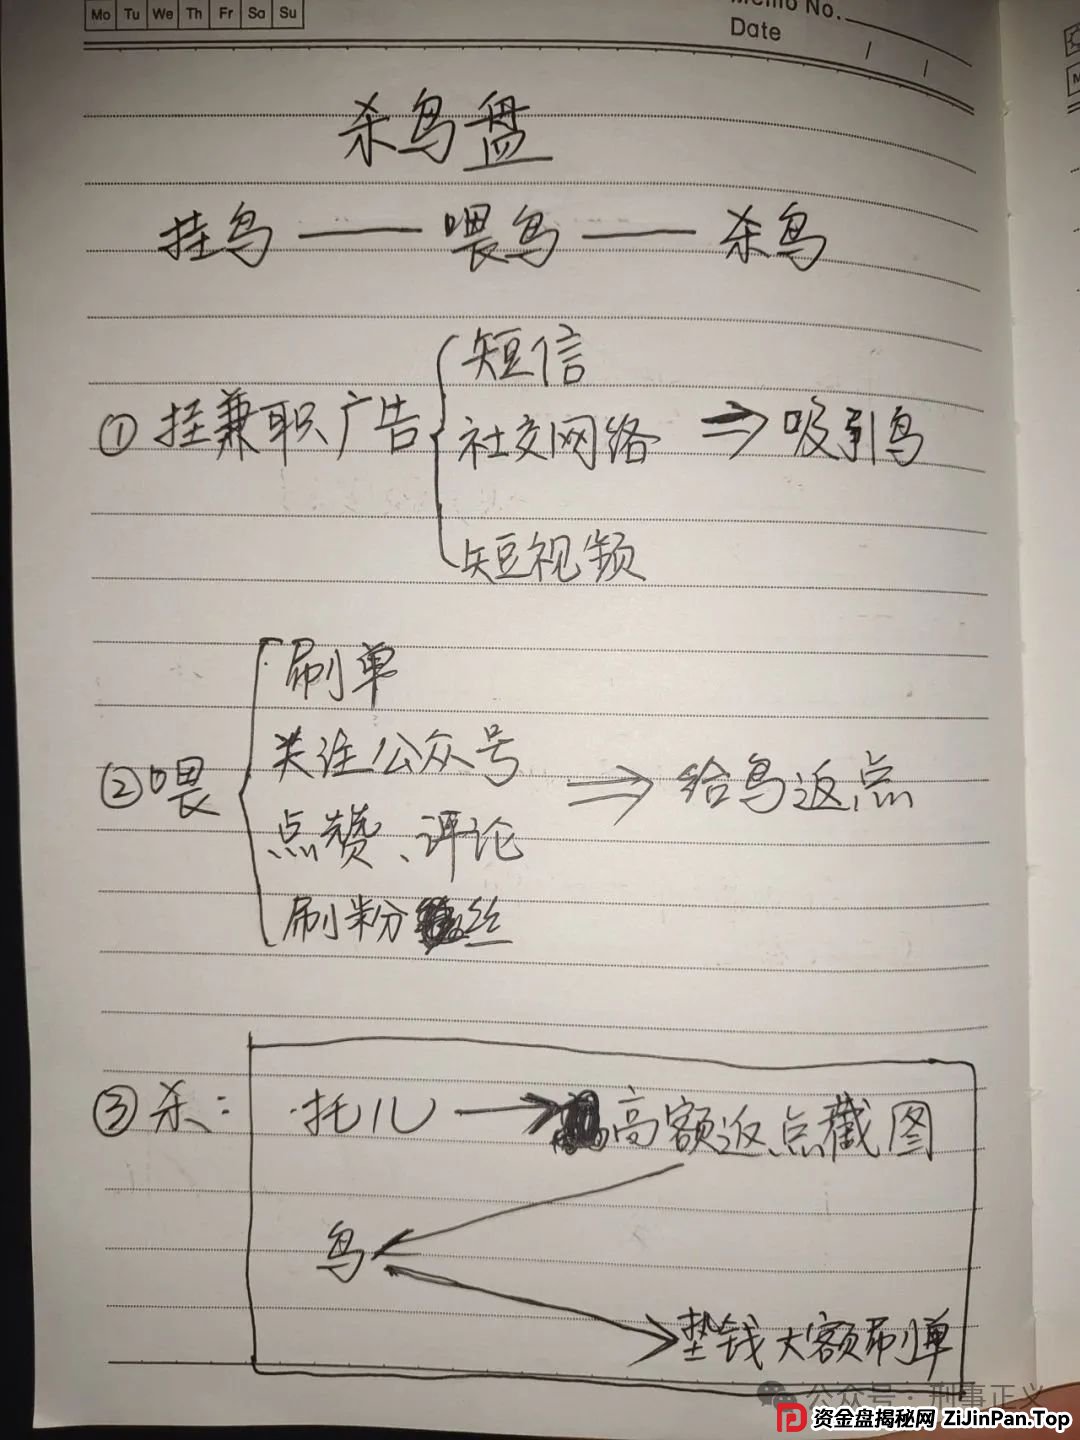 Mo Tu We Th Fr Sa Su
Memo No.
Date / /
杀鸟盘
挂鸟 —— 喂鸟 —— 杀鸟
① 挂兼职广告
短信
社交网络 ⇒ 吸引鸟
短视频
② 喂
刷单
关注公众号 ⇒ 给鸟返点
点赞、评论
刷粉丝
③ 杀:
托儿 → 高额返点截图
鸟
垫钱大额刷单
公众号·刑事正义
资金盘揭秘网 ZiJinPan.Top